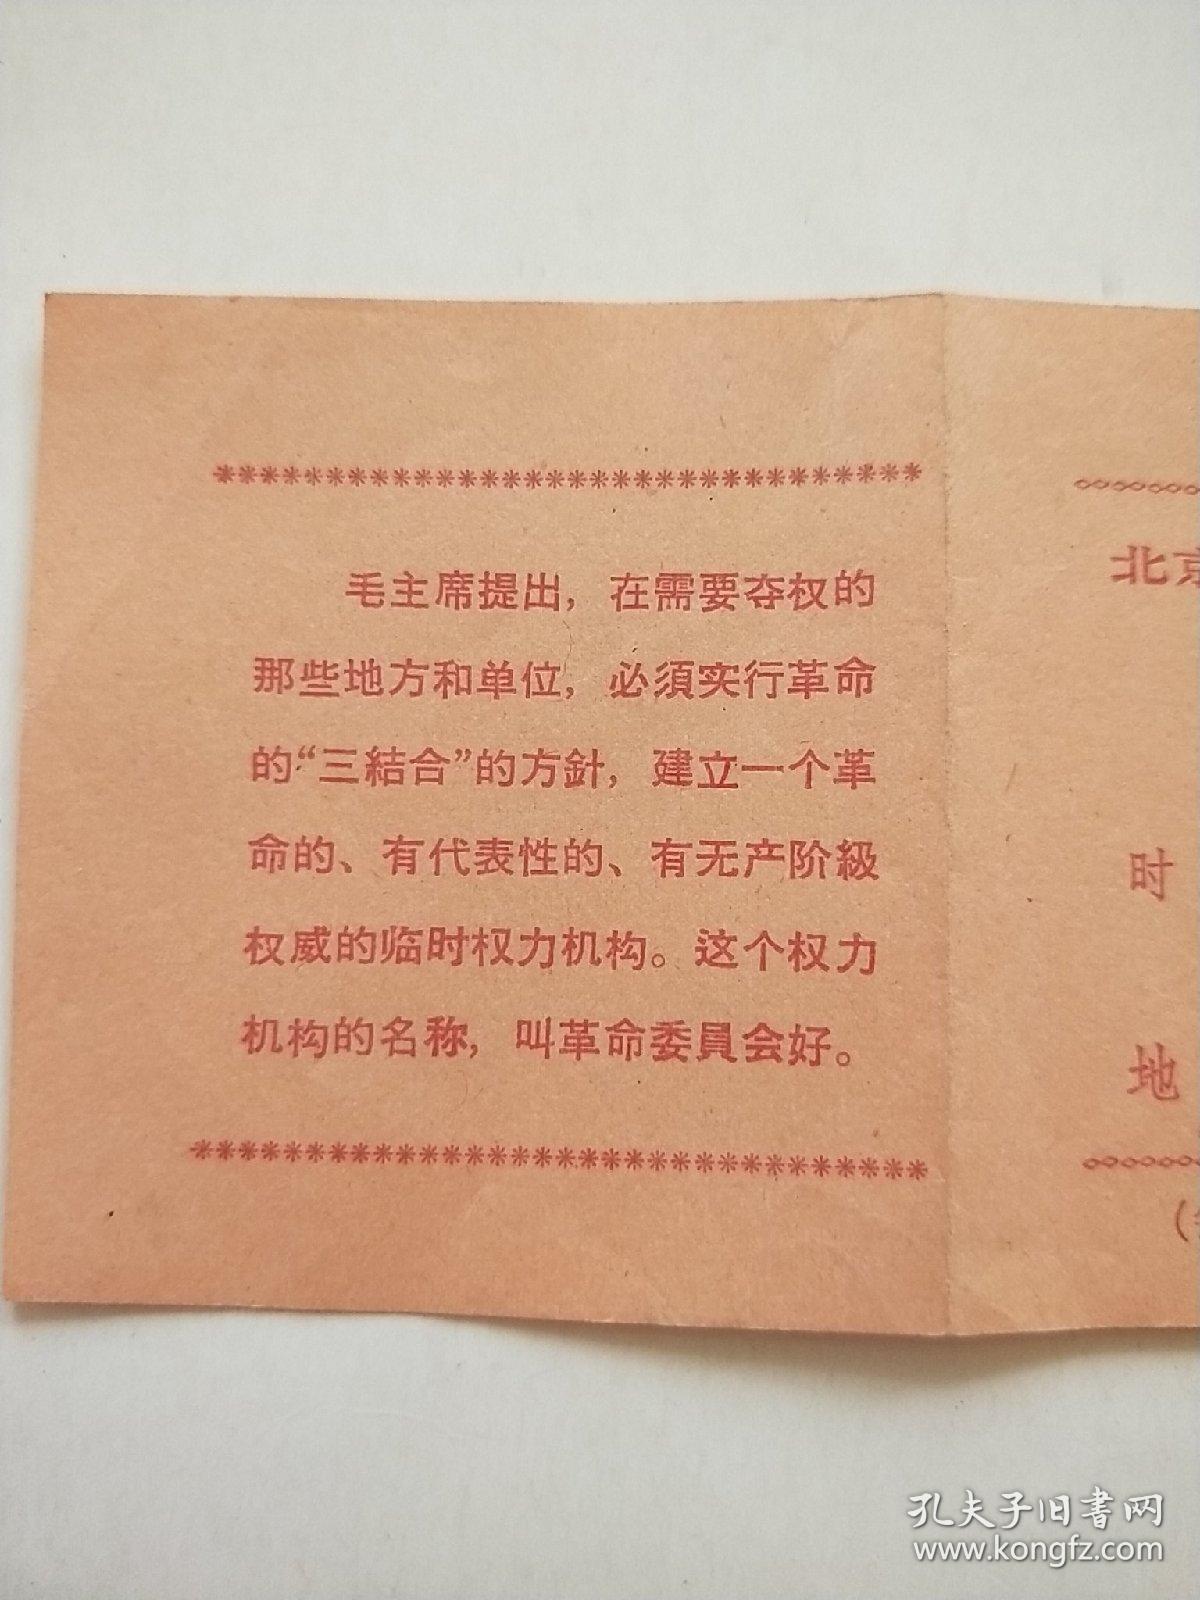 毛主席提出，在需要夺权的
那些地方和单位，必須实行革命
的“三結合”的方針，建立一个革
命的、有代表性的、有无产阶級
权威的临时权力机构。这个权力
机构的名称，叫革命委員会好。
北京
时
地
孔夫子旧书网
www.kongfz.com